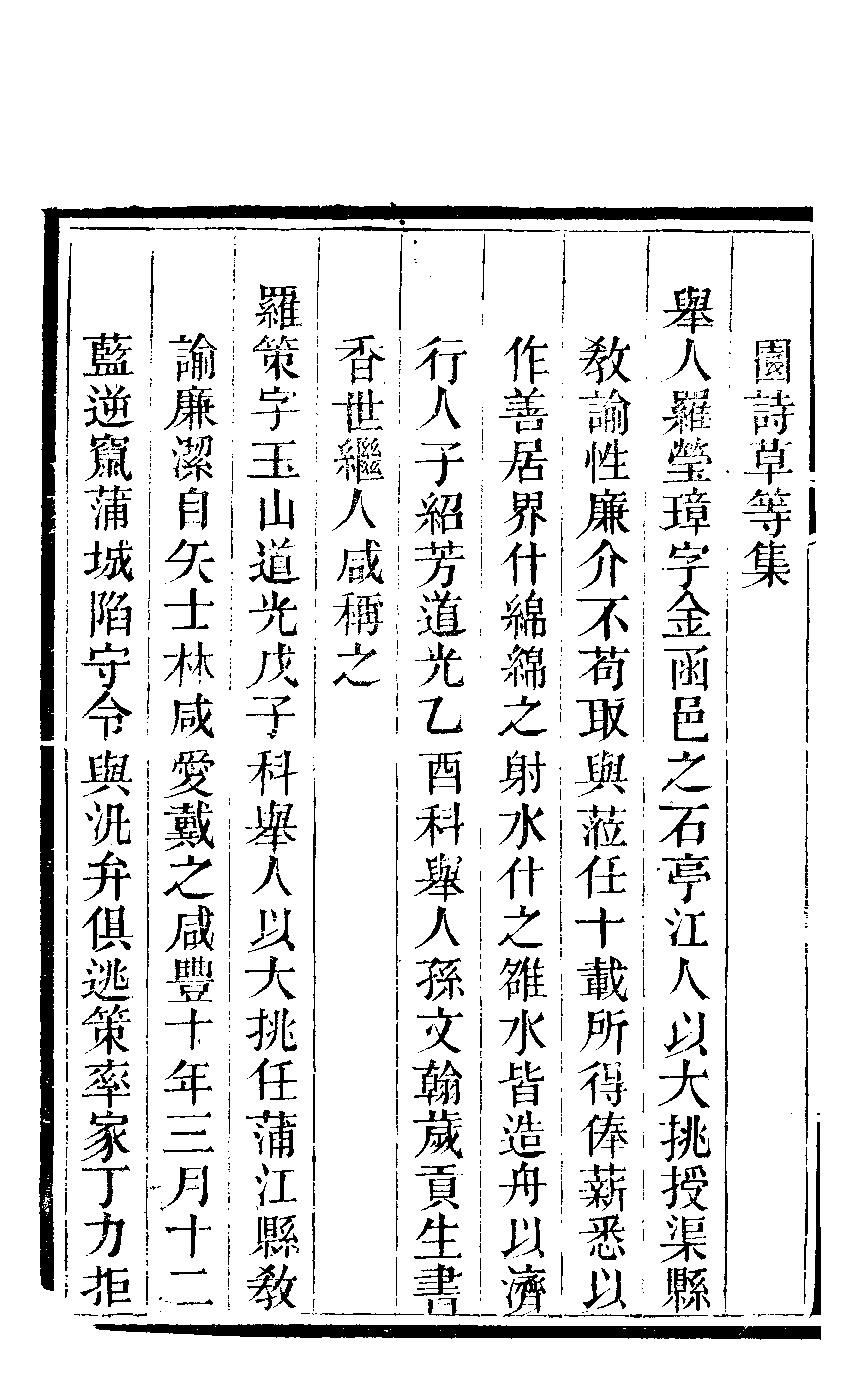 園詩草等集
舉人羅瑩璋字金函邑之石亭江人以大挑授渠縣
教諭性廉介不苟取與蒞任十載所得俸薪悉以
作善居界什綿綿之射水什之雒水皆造舟以濟
行人子紹芳道光乙酉科舉人孫文翰歲貢生書
香世繼人咸稱之
羅策字玉山道光戊子科舉人以大挑任蒲江縣教
諭廉潔自矢士林咸愛戴之咸豐十年三月十二
藍逆竄蒲城陷守令與汛弁俱逃策率家丁力拒